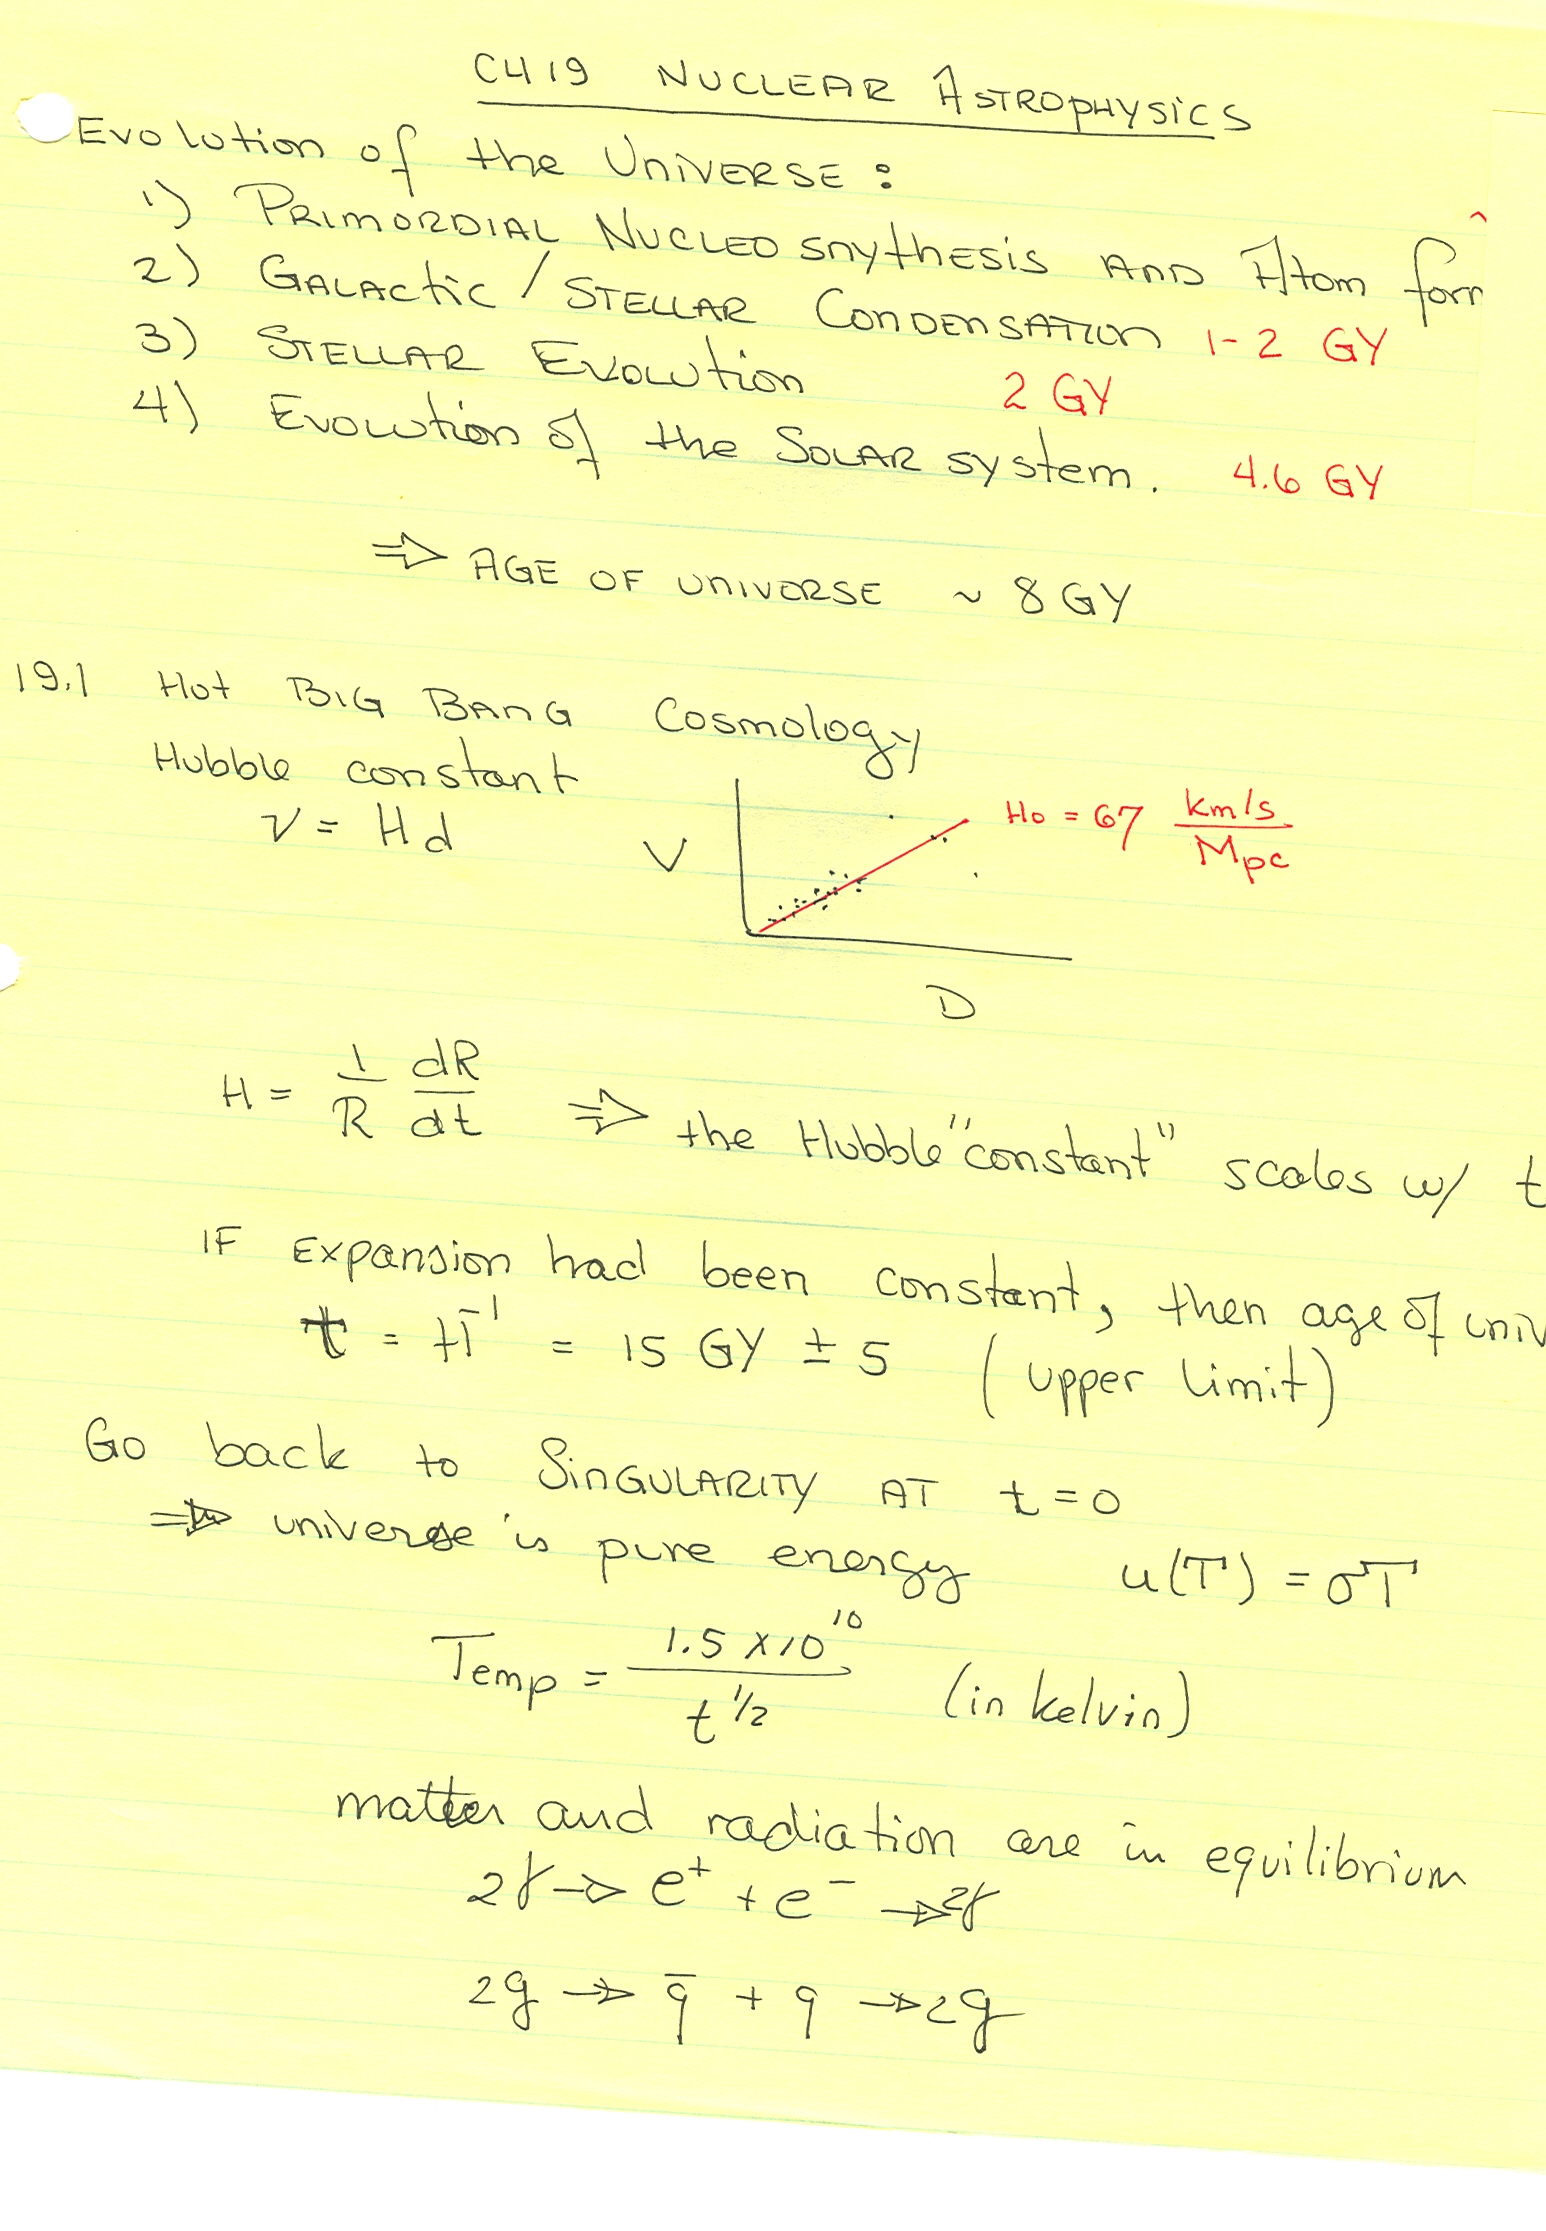 CH 19 NUCLEAR ASTROPHYSICS
Evolution of the UNIVERSE :
1) PRIMORDIAL NUCLEO snythesis AND Atom form
2) GALACtic / STELLAR CONDENSATION 1-2 GY
3) STELLAR EVOLUtion 2 GY
4) Evolution of the SOLAR system. 4.6 GY
⇒ AGE OF UNIVERSE ~ 8 GY
19.1 Hot BIG BANG Cosmology
Hubble constant
v = Hd
V
H0 = 67 km/s / Mpc
D
H = 1/R dR/dt ⇒ the Hubble "constant" scales w/ t
IF Expansion had been constant, then age of univ
t = H⁻¹ = 15 GY ± 5 (upper limit)
Go back to SINGULARITY AT t = 0
⇒ universe is pure energy u(T) = σT
Temp = 1.5 x 10¹⁰ / t^1/2 (in kelvin)
matter and radiation are in equilibrium
2γ → e⁺ + e⁻ → 2γ
2g → q̄ + q → 2g